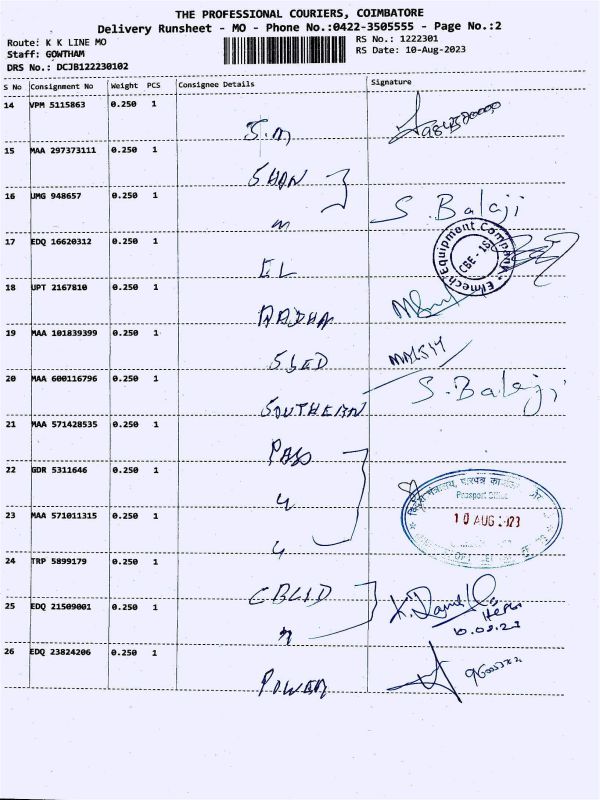 THE PROFESSIONAL COURIERS, COIMBATORE
Delivery Runsheet - MO - Phone No.:0422-3505555 - Page No.:2
Route: K K LINE MO
RS No.: 1222301
Staff: GOWTHAM
RS Date: 10-Aug-2023
DRS No.: DCJB122230102
S No Consignment No Weight PCS Consignee Details Signature
14 VPM 5115863 0.250 1
S.M
15 MAA 297373111 0.250 1
SHAN
16 UMG 948657 0.250 1 S. Balaji
17 EDQ 16620312 0.250 1
EL
Elmech Equipment Company
CBE - 18
18 UPT 2167810 0.250 1
19 MAA 101839399 0.250 1
20 MAA 600116796 0.250 1 S. Balaji
SOUTHERN
21 MAA 571428535 0.250 1
PASS
22 GDR 5311646 0.250 1
Passport Office
10 AUG 2023
23 MAA 571011315 0.250 1
24 TRP 5899179 0.250 1
25 EDQ 21509001 0.250 1
10.08.23
26 EDQ 23824206 0.250 1
POWER